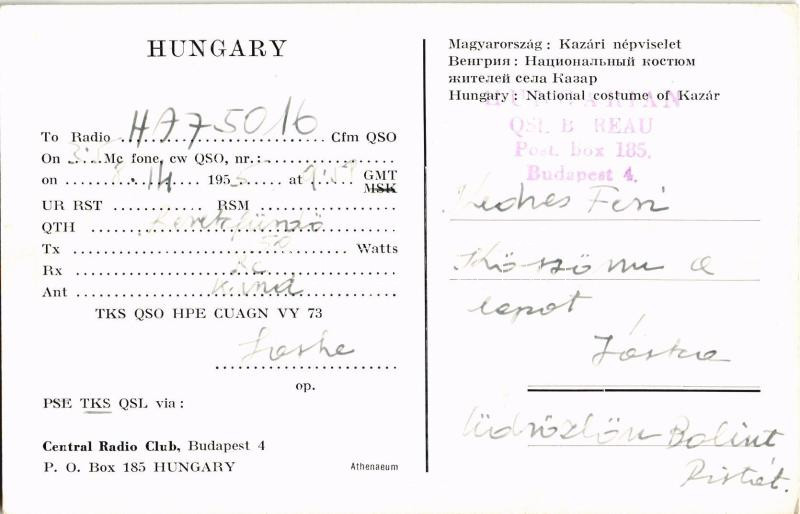 HUNGARY
To Radio HA75016 Cfm QSO
On 3.5 Mc fone, cw QSO, nr.:
on 14 1955 at GMT
MSK
UR RST RSM
QTH
Tx 50 Watts
Rx
Ant
TKS QSO HPE CUAGN VY 73
op.
PSE TKS QSL via :
Central Radio Club, Budapest 4
P. O. Box 185 HUNGARY
Athenaeum
Magyarország : Kazári népviselet
Венгрия : Национальный костюм
жителей села Казар
Hungary : National costume of Kazár
HUNGARIAN
QSL BUREAU
Post. box 185.
Budapest 4.
Kedves Feri
Köszönu a
lapot
Jóska
üdvözlöm Bálint
Pistát.